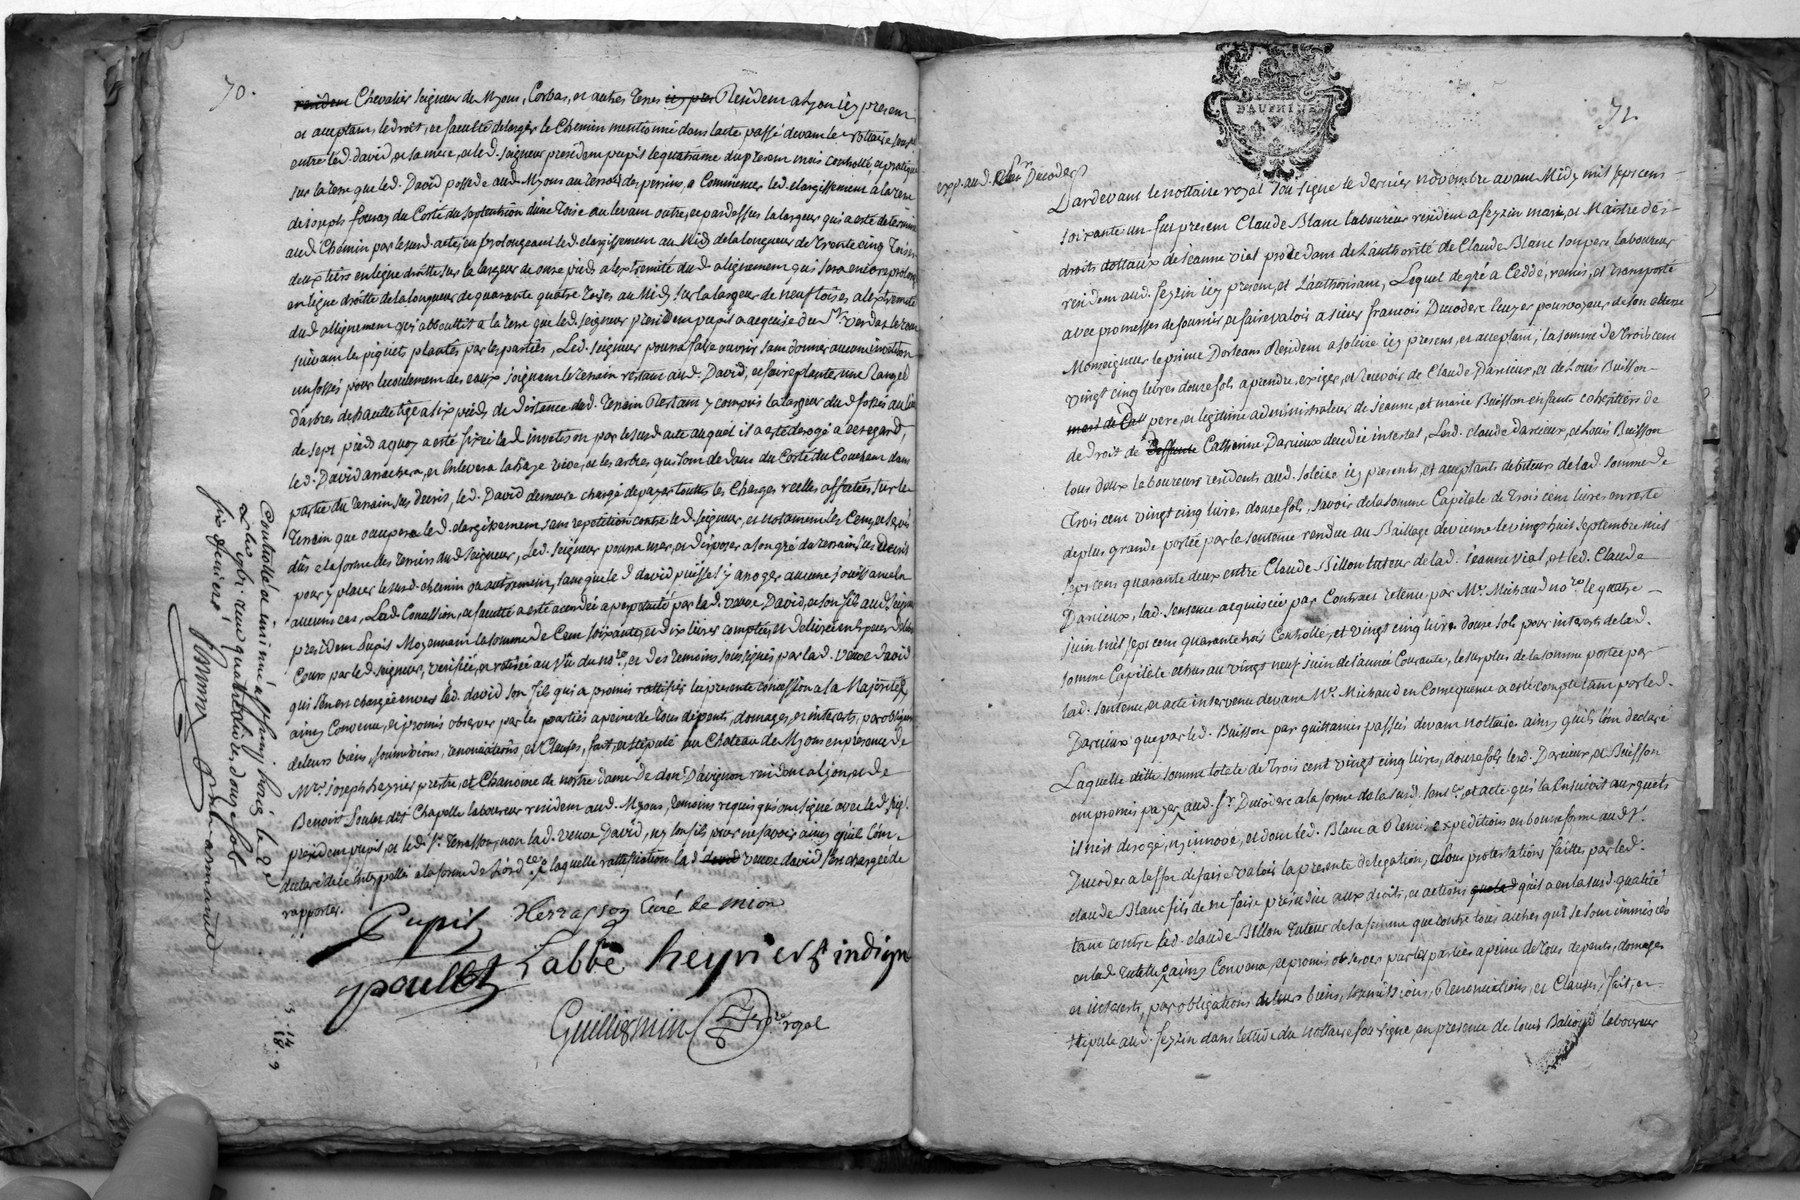 70.
resident Chevalier seigneur de Myons, Corbas, et autres terres icy pnt Resident a Lyon icy present
et acceptant, le droit, et faculté delargir le Chemin mentionné dans lacte passé devant le nottaire
entre led. david, et sa mere, et led. seigneur president pupil le quatrieme du present mois controllé, et pratiqué
sur la terre que led. David possede aud. Myons au terroir des perrins, a Commencer led. elargissement a la terre
de joseph fournas du Costé du septentrion dune toise au levant outre, et pardessus la largeur qui a esté determiné
aud. Chemin par le susd. acte, en prolongeant led. elargissement au Midy de la longueur de trente cinq toises
deux tiers en ligne droitte sur la largeur de onze pieds a lextremité dud. alignement qui sera encore prolongé
en ligne droitte de la longueur de quarante quatre toises au Midy sur la largeur de neuf toises a lextremité
dud. allignement qui abouttit a la terre que led. seigneur president pupil a acquise du Sr. verdat le tout
suivant les piquets plantés par les parties, Led. seigneur pourra faire ouvrir sans donner aucune
un fossé pour lecoulement des eaux joignant le terrain restant aud. David, et faire planter une Rangée
darbres de hautte tige a six pieds de distance dud. terrein Restant y compris la largeur dud. fossés au lieu
de sept pieds a quoy a esté fixé led. par le susd. acte auquel il a esté derogé a cet egard,
led. David arrachera, et Enlevera la haye vive, et les arbres qui sont dedans du Costé du Couchant dans
partie du terrain sus designé, led. David demeure chargé de payer touttes les Charges reelles affectées sur le
terrein que occupera led. elargissement, sans repetition contre led. seigneur, et notament les Cens, et servis
dus a la forme des terriers dud. seigneur, Led. seigneur pourra user, et disposer a son gré du terrain sus designé
pour y placer le susd. chemin ou autrement, sans que led. david puisse s'y arroger aucune jouissance en
aucun cas, Lad. Concession, et faculté a esté accordée a perpetuité par lad. veuve David, et son fils aud. seigneur
president Pupil Moyennant la somme de Cent soixante, et dix livres comptée, et delivrée en especes de
Cours par led. seigneur, verifiée, et retirée au vû du nore, et des temoins soussignés par lad. veuve David
qui sen est chargée envers led. david son fils qui a promis rattifier la presente concession a sa Majorité,
ainsy Convenu, et promis observer par les parties a peine de tous depents, domages, et interests, par obligation
de leurs biens, soumissions, renonciations, et Clauses, fait, et stipulé au Chateau de Myons en presence de
Mre. joseph heyrier prestre, et Chanoine de nostre dame de don Davignon resident a Lyon, et de
Benoist Poulet dit Chapelle laboureur resident aud. Myons, temoins requis qui ont signé avec led. seigr.
president pupil, et led. Sr. terrasson, non lad. veuve David, ny son fils pour ne scavoir ainsy quil lont
declaré de ce interpellés a la forme de lord.ce laquelle rattification lad. david veuve david sera chargée de
rapporter.
Pupil Terrasson Curé de mion
poullet Labbé heyrier indign
Guillermin nre royal
3 - 14
18. 9
Controllé a
six deniers
71.
DAUPHINÉ
exp. aud. Sieur Ducoder
Pardevant le nottaire royal sousigné le dernier novembre avant Midy mil sept cent
soixante un fut present Claude Blanc laboureur resident a feyzin mary, et Maistre des
droits dottaux de jeanne vial procedant de lauthorité de Claude Blanc son pere, laboureur
resident aud. feyzin icy present, et lauthorisant, Lequel de gré a Cedde, remis, et transporté
avec promesses de fournir et faire valoir a sieur françois Ducoder Ecuyer pourvoyeur de son altesse
Monseigneur le prince Dorleans Resident a soleize icy present, et acceptant, la somme de trois cent
vingt cinq livres douze sols a prendre, exiger, et recevoir de Claude Darcieux, et de Louis Buisson
pere, et legitime administrateur de jeanne, et marie Buisson enfants coheritiers de
de Droit de deffunte Catherine Darcieux decedée intestat, Lesd. claude darcieux, et Louis Buisson
tous deux laboureurs residents aud. soleize icy presents, et acceptants debiteurs de lad. somme de
trois cent vingt cinq livres douze sols, savoir de la somme Capitale de trois cent livres en reste
de plus grande portée par la sentence rendue au Baillage de vienne le vingt huit septembre mil
sept cent quarante deux entre Claude Billon tuteur de lad. jeanne vial, et led. Claude
Darcieux, lad. sentence acquiscée par Contract retenu par Me. Michaud nore. le quatre
juin mil sept cent quarante trois Controllé, et vingt cinq livres douze sols pour interests de lad.
somme Capitale echus au vingt neuf juin de lannée Courante, le surplus de la somme portée par
lad. sentence, et acte intervenu devant Me. Michaud en Consequence a esté compté tant par led.
Darcieux que par led. Buisson par quittances passées devant nottaire ainsy quils lont declaré
Laquelle ditte somme totale de trois cent vingt cinq livres, douze sols lesd. Darcieux, et Buisson
ont promis payer aud. Sr. Ducoder a la forme de la susd. sentce, et acte qui la Ensuivit auxquels
il nest derogé, ny innové, et dont led. Blanc a Remis expeditions en bonne forme aud. Sr.
Ducoder a leffet de faire valoir la presente delegation, sous protestations faittes par led.
claude Blanc fils de ne faire prejudice aux droits, et actions quela quil a en la susd. qualité
tant contre led. claude Billon tuteur de sa femme que contre tous autres qui se sont immiscés
en lad. tutelle, ainsy Convenu, et promis observer par les parties a peine de tous depents, domages
et interests, par obligations de leurs biens, soumissions, Renonciations, et Clauses, fait, et
stipulé aud. feyzin dans letude du nottaire sousigné, en presence de Louis laboureur